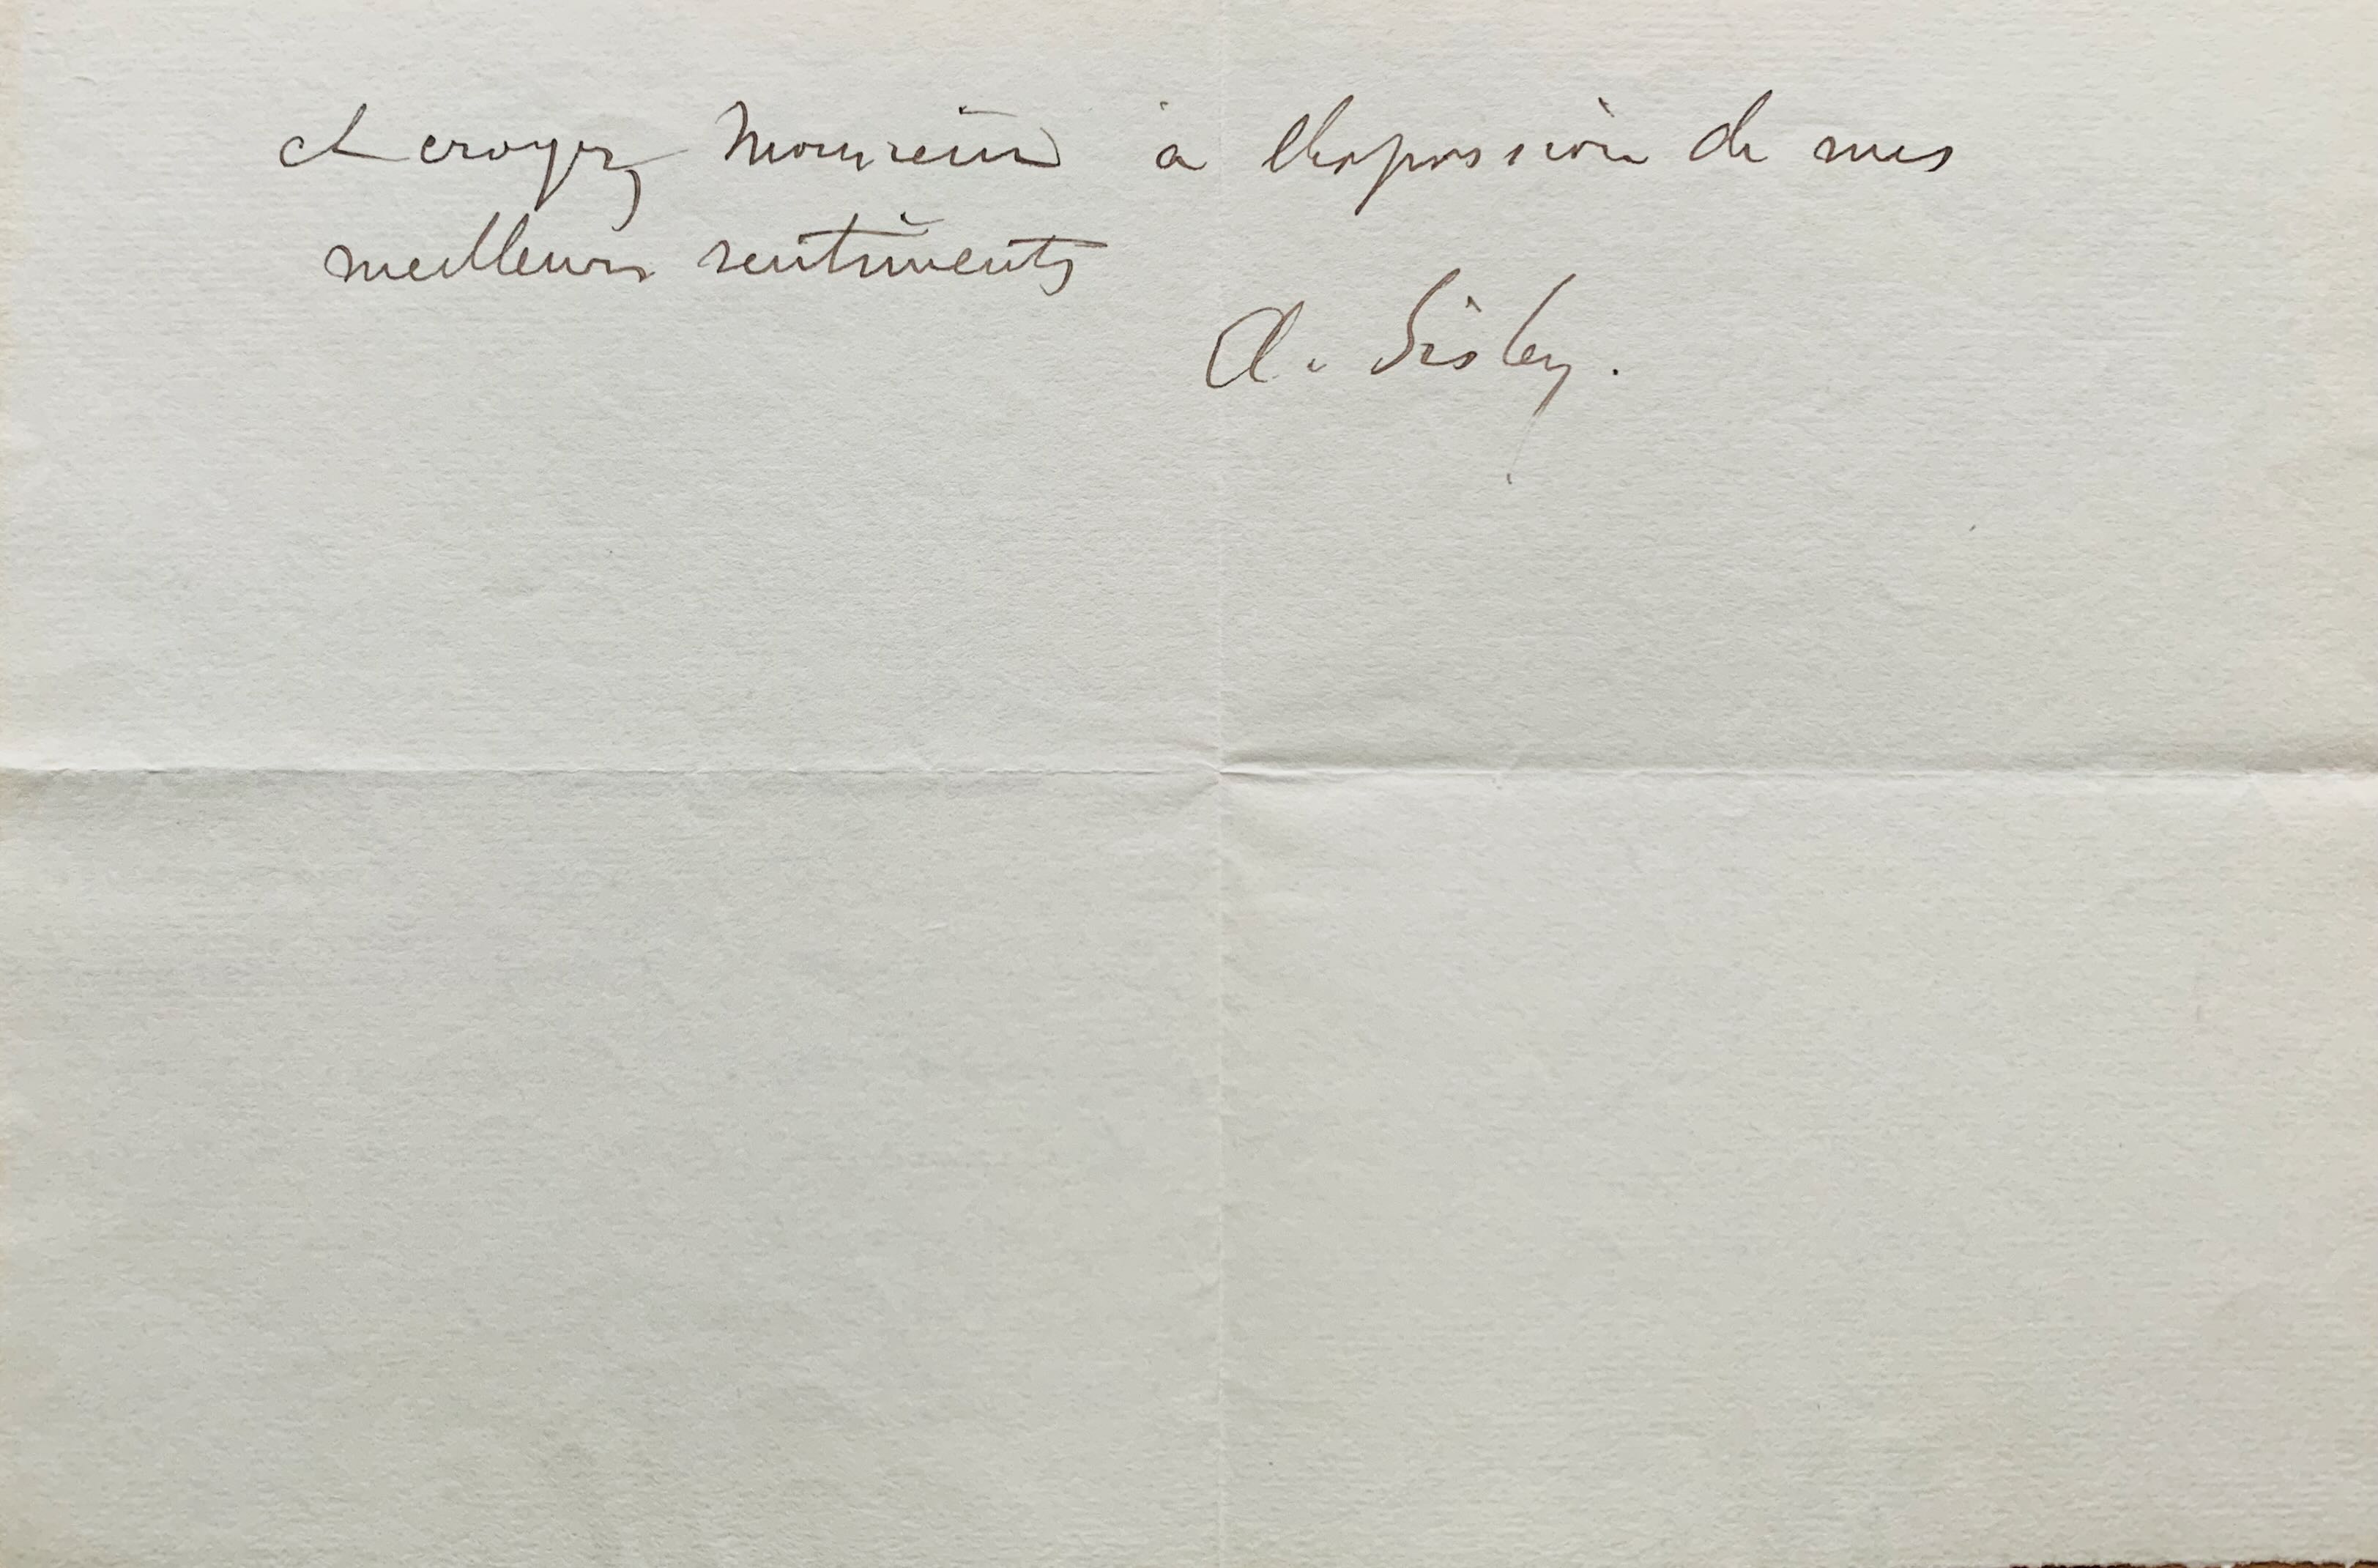 et croyez Monsieur à l'expression de mes
meilleurs sentiments
A. Sisley.